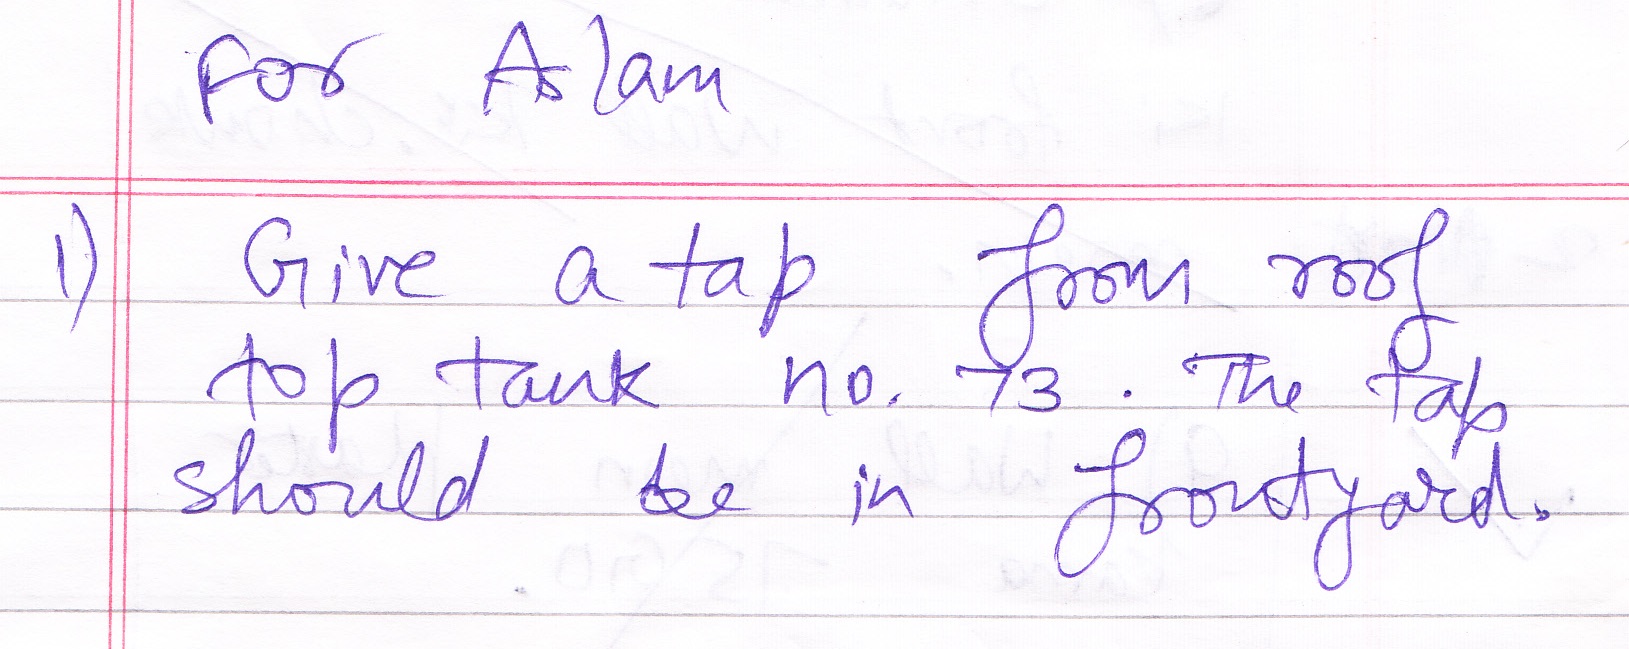 For Aslam
1) Give a tap from roof
top tank no. 73. The tap
should be in frontyard.